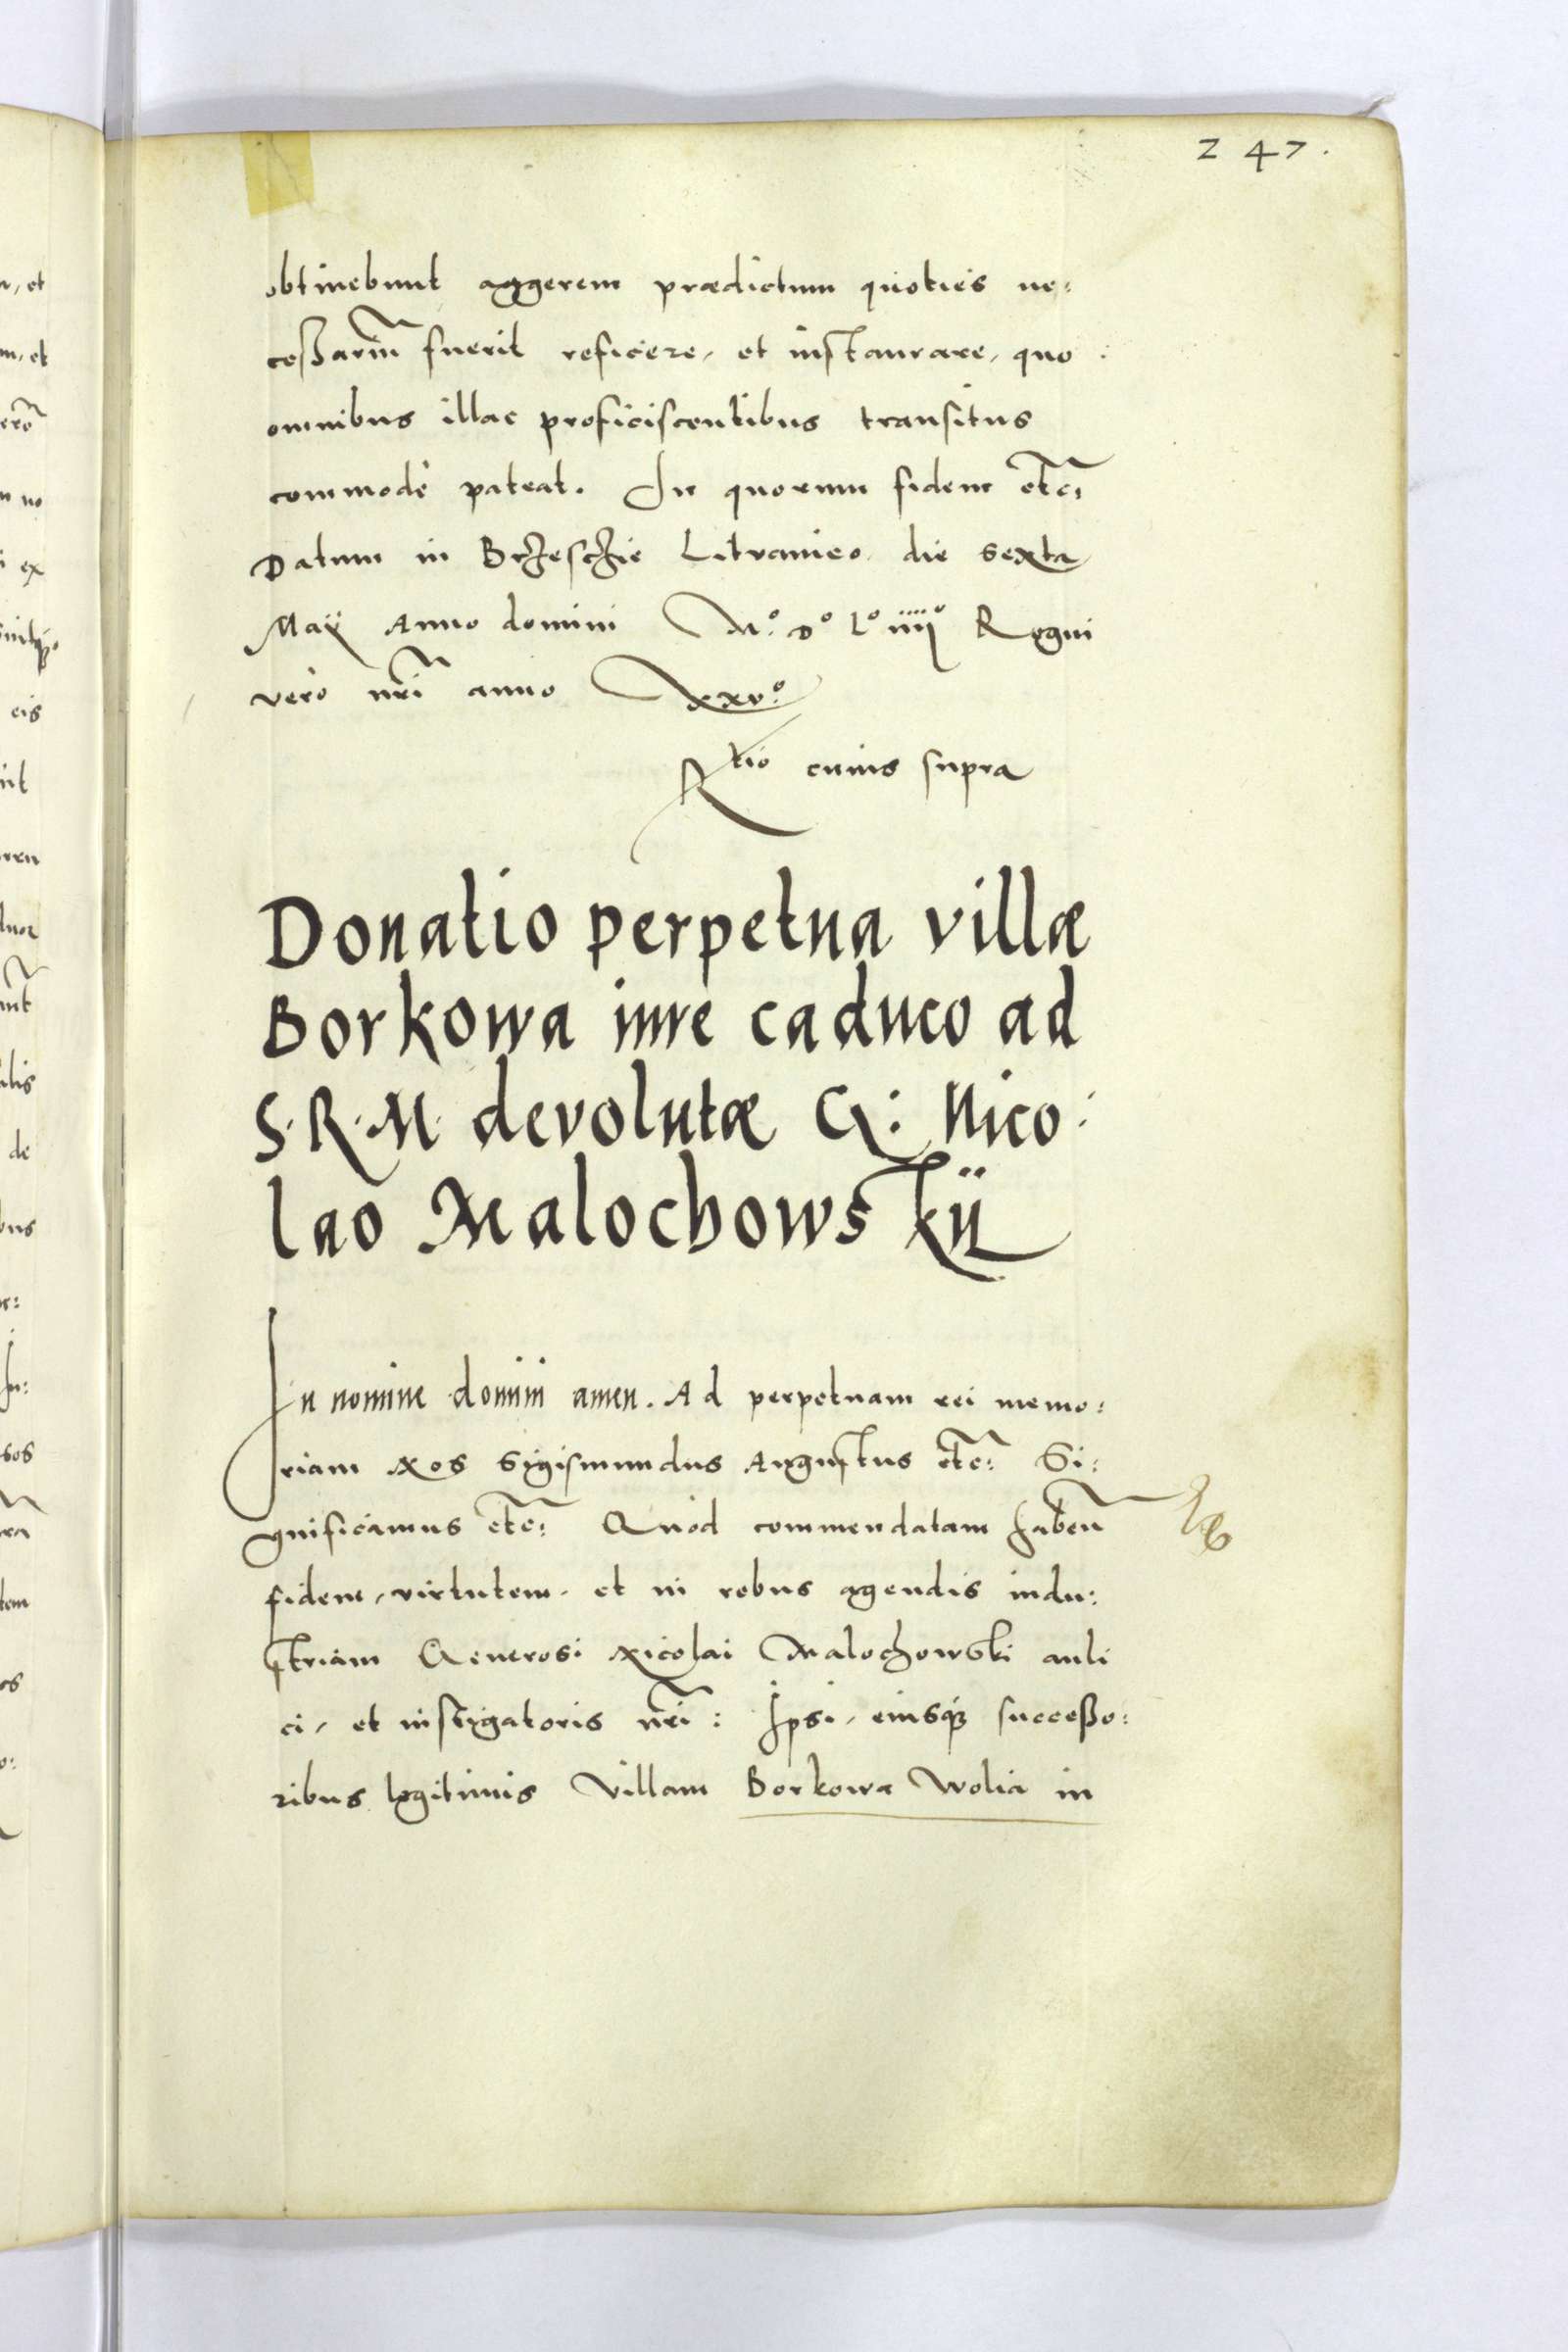 247.
obtinebunt aggerem prædictum quoties ne:
cessariũ fuerit reficere, et instaurare, quo:
omnibus illac proficiscentibus transitus
commodè pateat. In quorum fidem etc:
Datum in Brzesczie Lituanico die sexta
Maij Anno domini M.° D° L° iiij° Regni
verò nrĩ anno XXV.°
Rtio cuius supra
Donatio perpetua villæ
Borkowa iure caduco ad
S. R. M. devolutæ G: Nico:
lao Malochowskij
In nomine domini amen. Ad perpetuam rei memo:
riam Nos Sigismundus Augustus etc: Si:
gnificamus etc: Quod commendatam habeñ
fidem, virtutem, et in rebus agendis indu:
striam Generosi Nicolai Malochowski auli
ci, et instigatoris nrĩ: Ipsi, eiusq3 successo:
ribus legitimis Villam Borkowa Wolia in